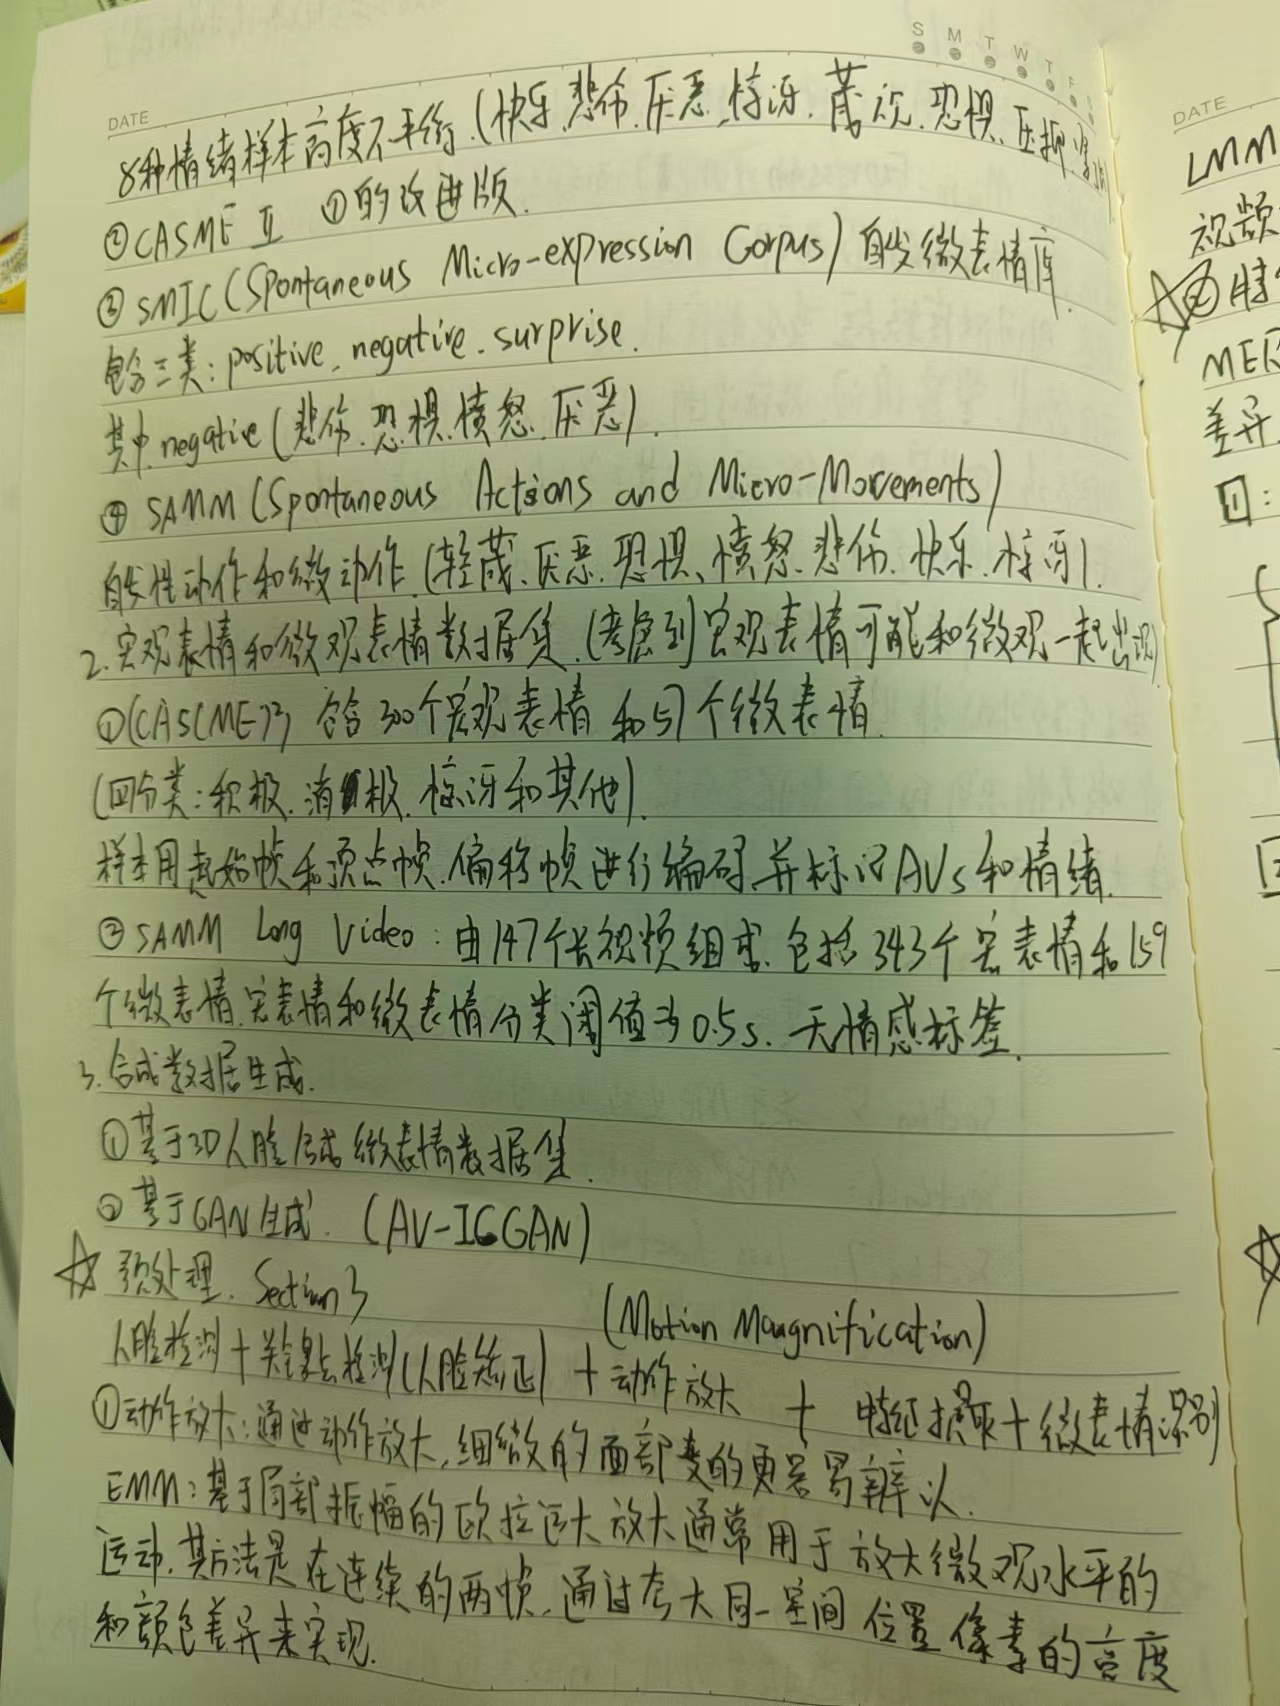 S M T W T F S
DATE
8种情绪样本高度不平衡.(快乐.悲伤.厌恶.惊讶.蔑视.恐惧.压抑.紧张)
②CASME II ①的改进版.
③ SMIC(Spontaneous Micro-expression Corpus) 自发微表情库.
包含三类: positive, negative. surprise.
其中negative(悲伤.恐惧.愤怒.厌恶).
④ SAMM (Spontaneous Actions and Micro-Movements)
自发性动作和微动作.(轻蔑、厌恶.恐惧、愤怒.悲伤.快乐.惊讶).
2.宏观表情和微观表情数据集.(考虑到宏观表情可能和微观一起出现)
①(CAS(ME)²) 包含300个宏观表情和57个微表情.
(四分类:积极.消极.惊讶和其他).
样本用起始帧和顶点帧.偏移帧进行编码,并标记AVs和情绪.
② SAMM Long Video:由147个长视频组成.包括343个宏表情和159
个微表情.宏表情和微表情分类阈值为0.5s. 无情感标签.
3.合成数据生成.
①基于3D人脸合成微表情数据集.
②基于GAN生成. (AV-ICGAN)
☆ 预处理. Section 3
(Motion Maugnification)
人脸检测+关键点检测(人脸矫正)+动作放大 + 特征提取+微表情识别
①动作放大:通过动作放大,细微的面部变的更容易辨认.
EMM:基于局部振幅的欧拉运大放大通常用于放大微观水平的
运动.其方法是在连续的两帧.通过夸大同一空间位置像素的亮度
和颜色差异来实现.
DATE
LMM
视频
☆②特
ME
差异.